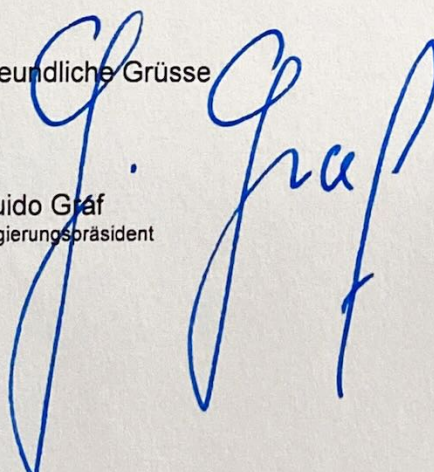 eundliche Grüsse
G. Graf
uido Graf
gierungspräsident